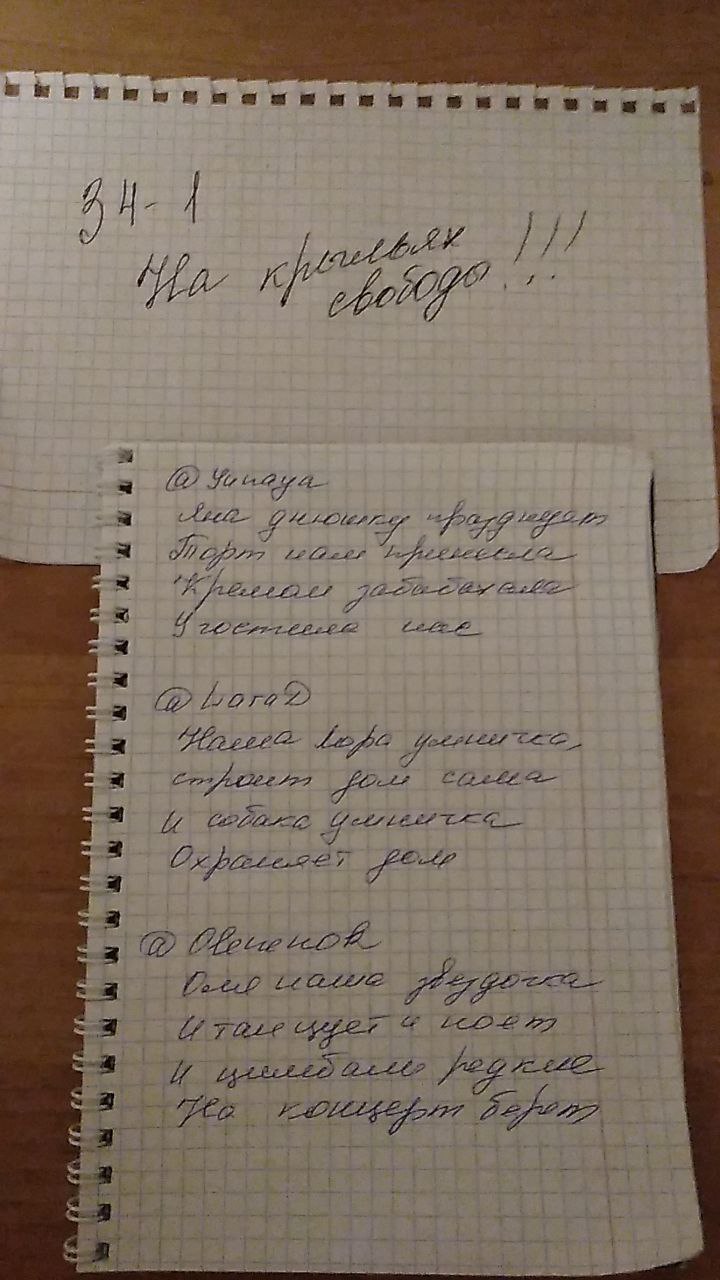 34-1
На крыльях
свободы!!!
@Yunaya
Яна днюшку празднует
Торт нам принесла
Кремом забабахала
Угостила нас
@LaraD
Наша Лора умничка,
строит дом сама
И собака умничка
Охраняет дом
@ОвепепоК
Оля наша звездочка
И танцует и поет
И цимбалы редкие
На концерт берет